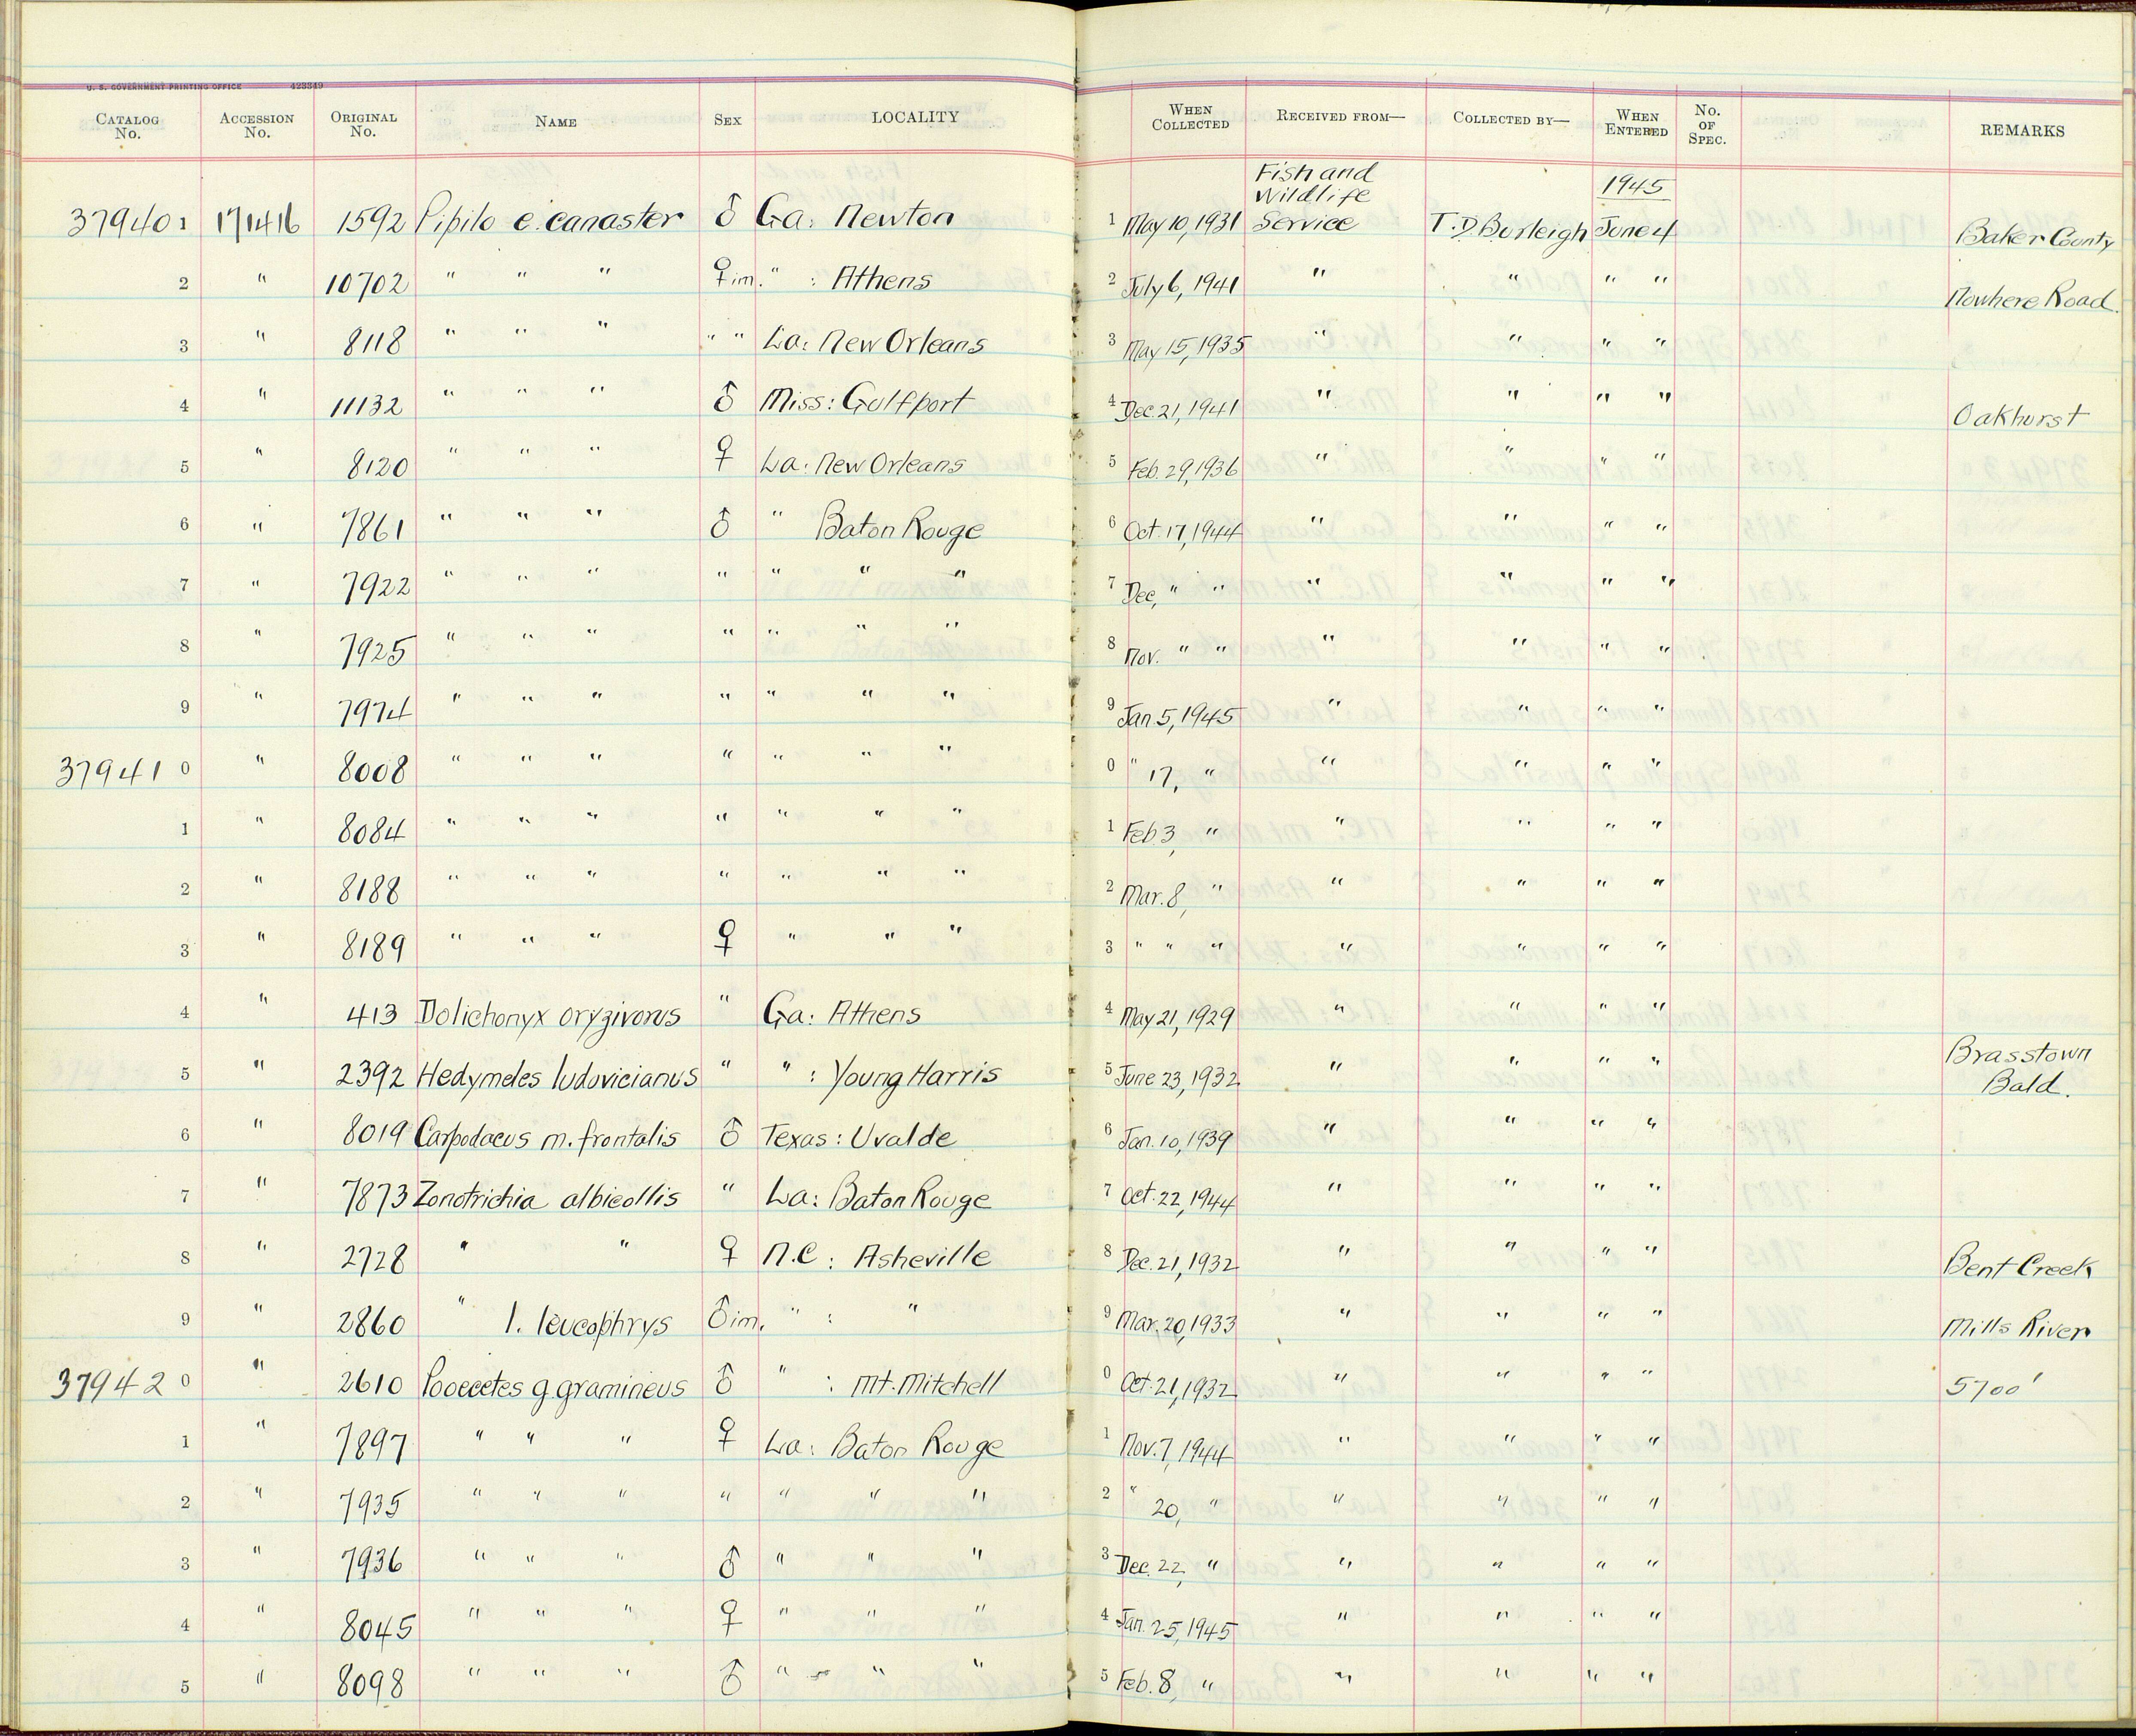 U. S. GOVERNMENT PRINTING OFFICE 423349
CATALOG No. ACCESSION No. ORIGINAL No. NAME SEX LOCALITY WHEN COLLECTED RECEIVED FROM— COLLECTED BY— WHEN ENTERED No. OF SPEC. REMARKS
37940 1 171416 1592 Pipilo e. canaster ♂ Ga: Newton 1 May 10, 1931 Fish and Wildlife Service T. D. Burleigh 1945 June 4 Baker County
2 " 10702 " " " ♀ im. " : Athens 2 July 6, 1941 " " " " Nowhere Road.
3 " 8118 " " " " " La: New Orleans 3 May 15, 1935 " " " "
4 " 11132 " " " ♂ Miss: Gulfport 4 Dec. 21, 1941 " " " " Oakhurst
5 " 8120 " " " ♀ La: New Orleans 5 Feb. 29, 1936 " " " "
6 " 7861 " " " ♂ " Baton Rouge 6 Oct. 17, 1944 " " " "
7 " 7922 " " " " " " " 7 Dec. " " " " " "
8 " 7925 " " " " " " " 8 Nov. " " " " " "
9 " 7974 " " " " " " " 9 Jan. 5, 1945 " " " "
37941 0 " 8008 " " " " " " " 0 " 17, " " " " "
1 " 8084 " " " " " " " 1 Feb. 3, " " " " "
2 " 8188 " " " " " " " 2 Mar. 8, " " " " "
3 " 8189 " " " ♀ " " " 3 " " " " " " "
4 " 413 Dolichonyx oryzivorus " Ga: Athens 4 May 21, 1929 " " " "
5 " 2392 Hedymeles ludovicianus " " : Young Harris 5 June 23, 1932 " " " " Brasstown Bald.
6 " 8019 Carpodacus m. frontalis ♂ Texas: Uvalde 6 Jan. 10, 1939 " " " "
7 " 7873 Zonotrichia albicollis " La: Baton Rouge 7 Oct. 22, 1944 " " " "
8 " 2728 " " ♀ N.C: Asheville 8 Dec. 21, 1932 " " " " Bent Creek
9 " 2860 " l. leucophrys ♂ im. " : " 9 Mar. 20, 1933 " " " " Mills River
37942 0 " 2610 Pooecetes g. gramineus ♂ " : Mt. Mitchell 0 Oct. 21, 1932 " " " " 5700'
1 " 7897 " " " ♀ La: Baton Rouge 1 Nov. 7, 1944 " " " "
2 " 7935 " " " " " " " 2 " 20, " " " " "
3 " 7936 " " " ♂ " " " 3 Dec. 22, " " " " "
4 " 8045 " " " ♀ " " " 4 Jan. 25, 1945 " " " "
5 " 8098 " " " ♂ " " " 5 Feb. 8, " " " " "